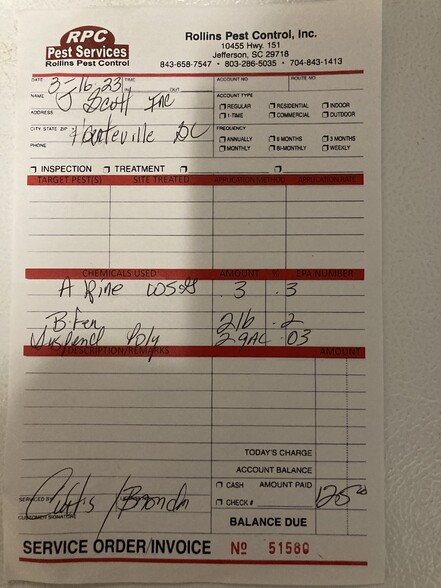 RPC
Pest Services
Rollins Pest Control
Rollins Pest Control, Inc.
10455 Hwy. 151
Jefferson, SC 29718
843-658-7547 • 803-286-5035 • 704-843-1413
DATE 3-16-23 TIME IN OUT ACCOUNT NO ROUTE NO
NAME J Scott Inc
ACCOUNT TYPE
REGULAR RESIDENTIAL INDOOR
1-TIME COMMERCIAL OUTDOOR
ADDRESS
CITY, STATE ZIP SC
FREQUENCY
ANNUALLY 6 MONTHS 3 MONTHS
MONTHLY BI-MONTHLY WEEKLY
PHONE
INSPECTION TREATMENT
TARGET PEST(S) SITE TREATED APPLICATION METHOD APPLICATION RATE
CHEMICALS USED AMOUNT % EPA NUMBER
.3 .3
Bifen .2
Suspend Poly .03
DESCRIPTION/REMARKS AMOUNT
TODAY'S CHARGE
ACCOUNT BALANCE
CASH AMOUNT PAID
CHECK # 125
SERVICED BY Curtis / Brandon
CUSTOMER SIGNATURE
BALANCE DUE
SERVICE ORDER/INVOICE № 51580